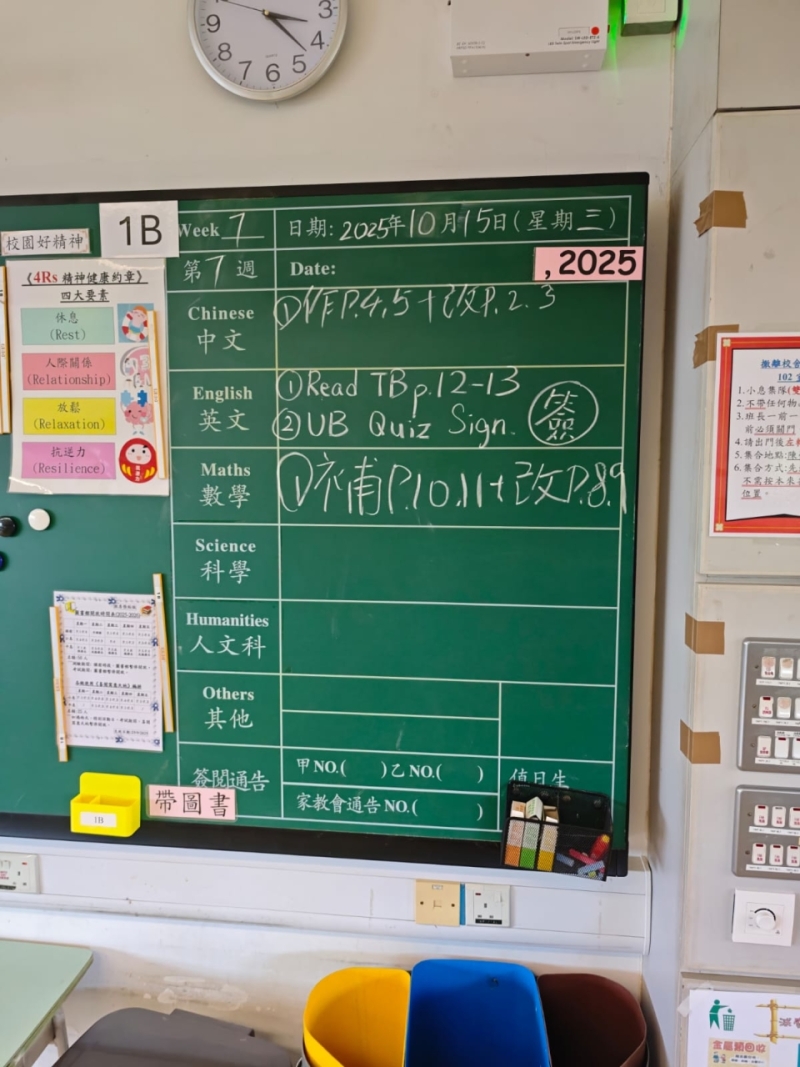 3
4
5
6
7
8
9
校園好精神
1B
Week 7
日期: 2025年10月15日(星期三)
第7週
Date:
, 2025
《4Rs 精神健康約章》
四大要素
休息
(Rest)
人際關係
(Relationship)
放鬆
(Relaxation)
抗逆力
(Resilience)
Chinese
中文
①作P.4,5+改P.2,3
English
英文
①Read TB p.12-13
②UB Quiz Sign. 簽
Maths
數學
①補P.10,11+改P.8,9
Science
科學
Humanities
人文科
Others
其他
簽閱通告
甲NO.( )乙NO.( )
家教會通告NO.( )
值日生
1B
帶圖書
1.小息集隊
2.不帶任何物
3.班長一前一
前必須關門
4.請出門後左
5.集合地點:
6.集合方式:
不需按本來
位置。
金屬類回收